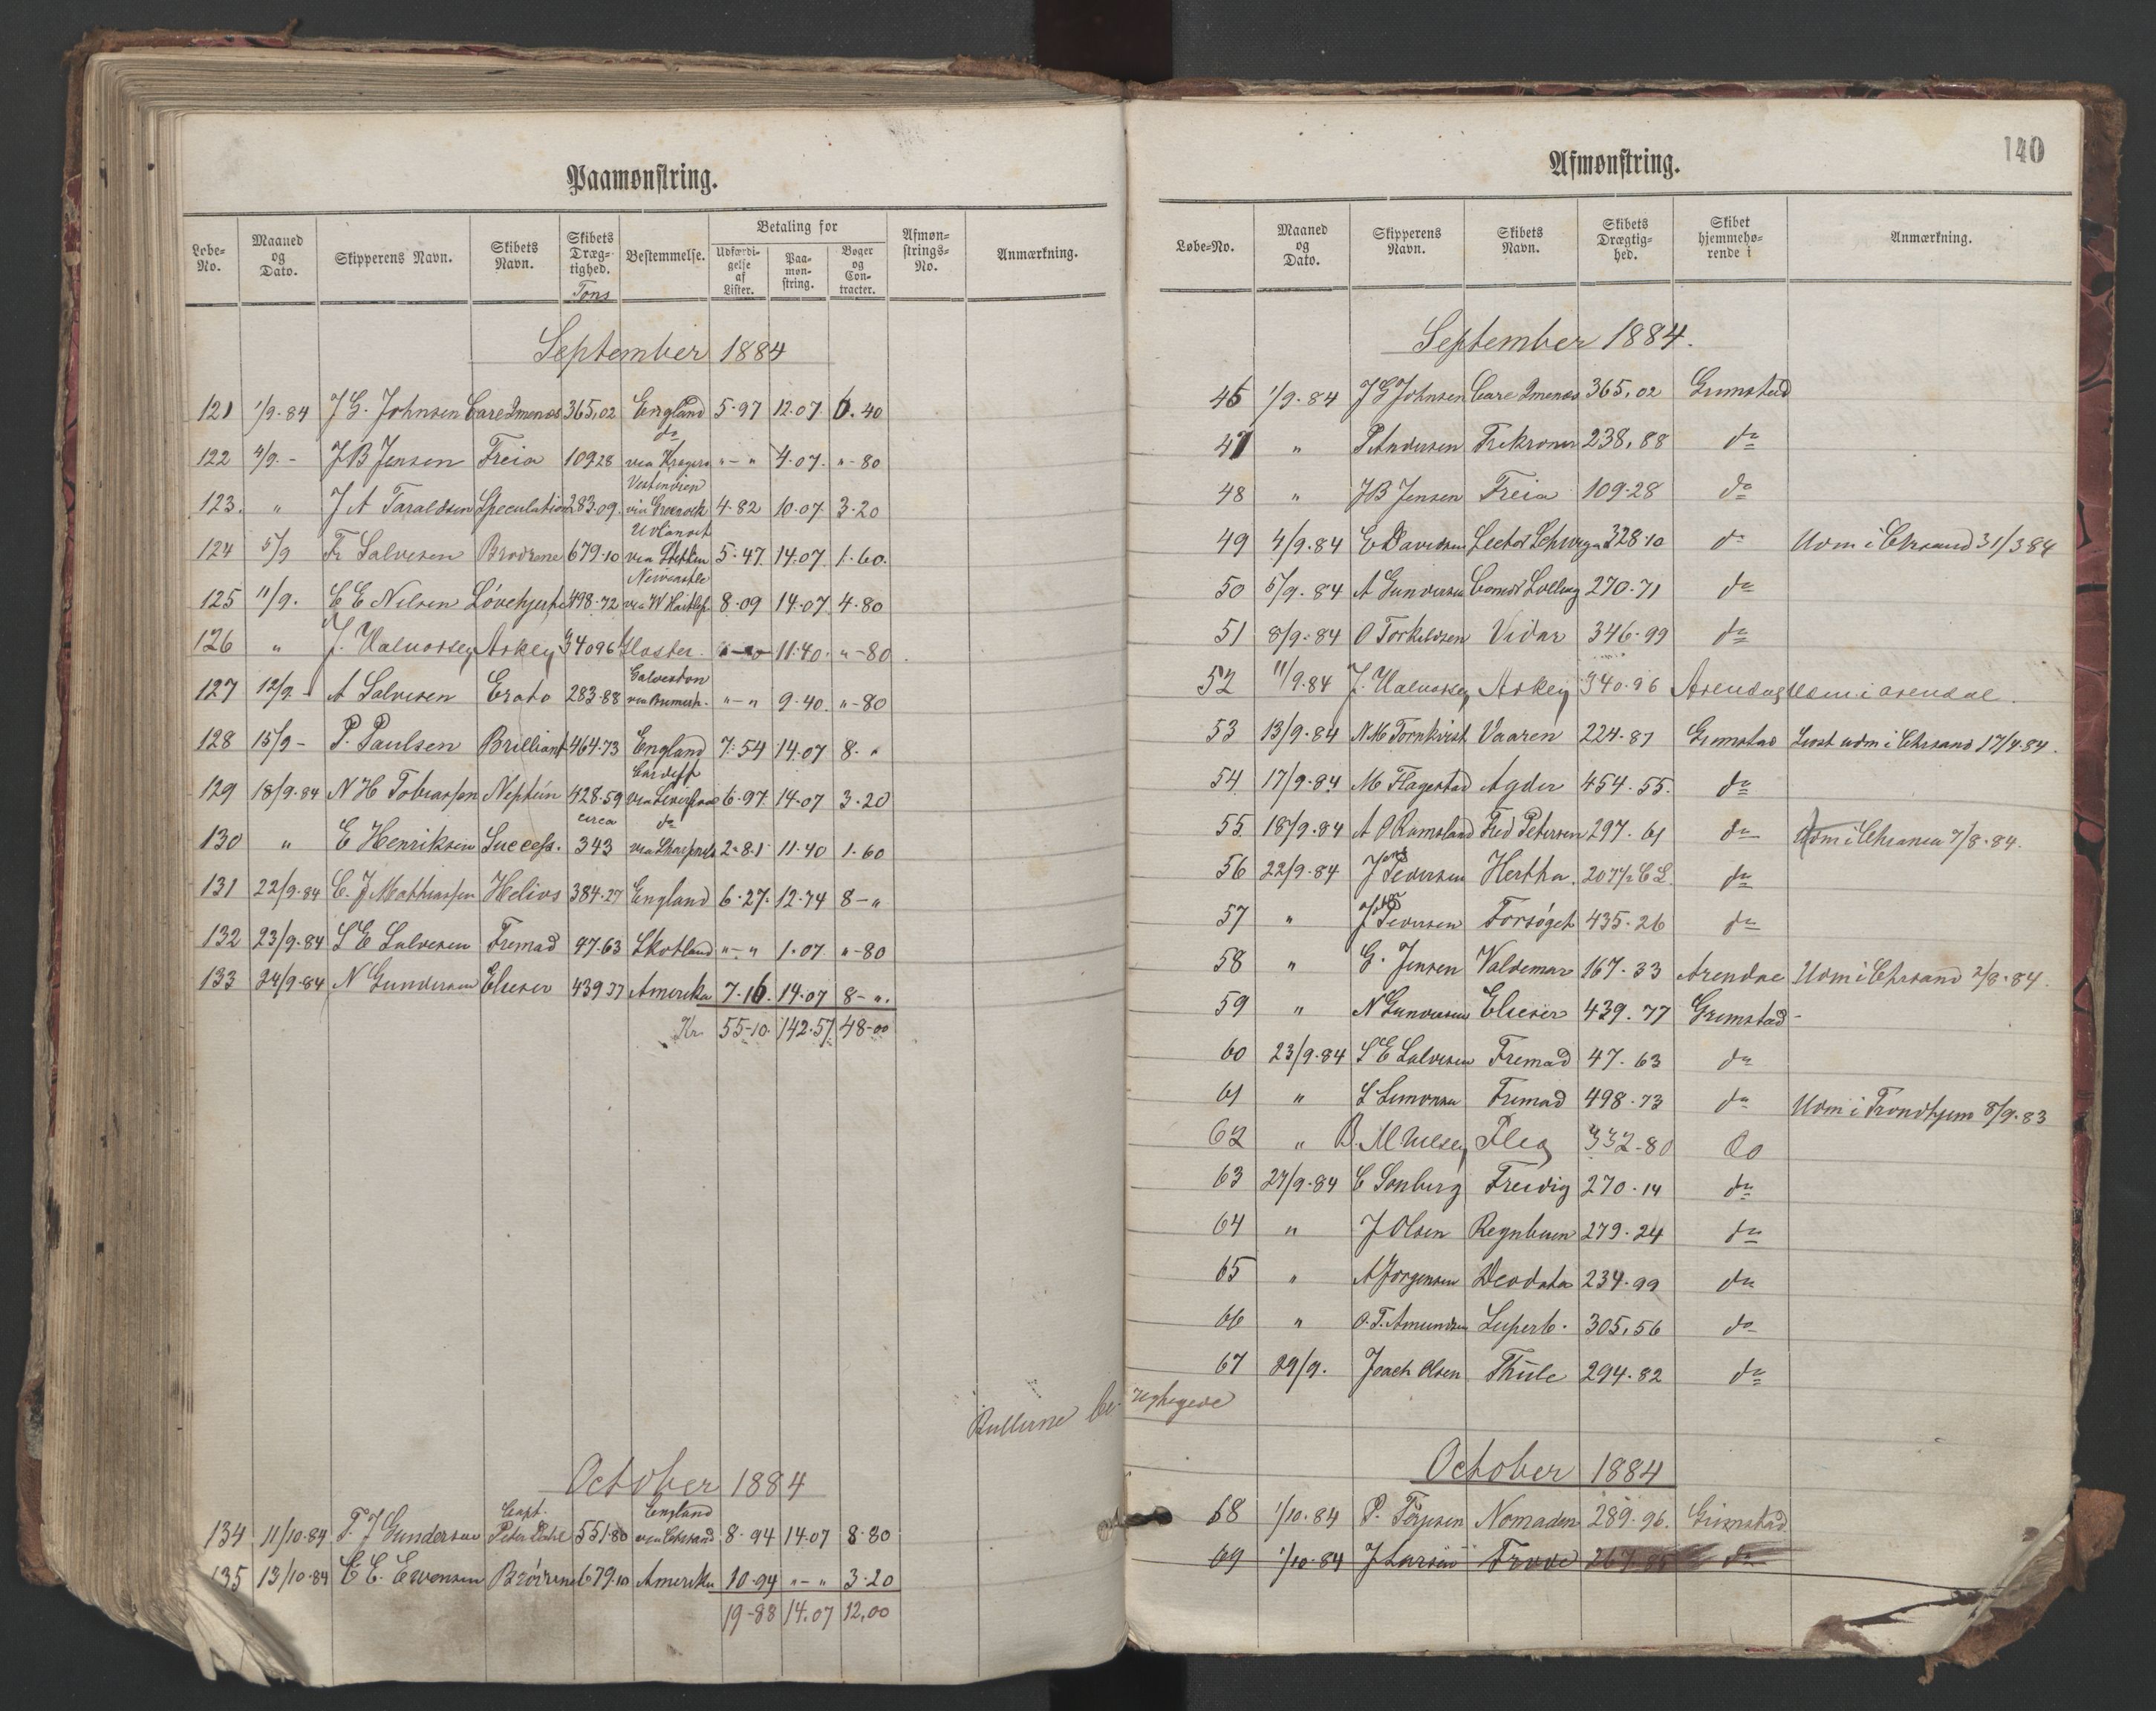 Paamønstring.
Løbe-No. | Maaned og Dato. | Skipperens Navn. | Skibets Navn. | Skibets Drægtighed. Tons | Bestemmelse. | Betaling for Udfærdigelse af Lister. | Paamønstring. | Bøger og Contracter. | Afmønstrings-No. | Anmærkning.
September 1884
121 1/9-84 J G. Johnsen Care 365,02 England 5-97 12.07 6.40
122 4/9- J B Jensen Freia 109 28 do via Kragerø "-" 4.07. "-80
123. " J A Taraldsen Speculation 283.09. Vestindien via Greenock 4.82 10.07. 3.20
124 5/9 Fr Salvesen Brødrene 679.10 via Stettin 5.47 14.07. 1.60.
125 11/9. C E Nielsen Løvehjerte 498.72 Newcastle via W Hartlep. 8.09 14.07. 4.80
126 " J. Halvorsen Askey 340 96 Gloster. 11.40. "-80
127 12/9- A Salvesen Erato 283.88 Galveston via "-" 9.40. "-80
128 15/9- P. Paulsen Brilliant 464.73 England 7.54 14.07 8. "
129 18/9.84 N H Tobiassen Neptun 428.59 Cardiff via 6.97. 14.07 3.20
130 " E Henriksen Success. circa 343 do via 2.81 11.40 1.60
131 22/9.84 C. J Mathiassen Helios 384.27 England 6.27. 12.74 8-"
132 23/9.84 S E Salvesen Fremad 47.63 Skotland "-" 1.07 "-80
133 24/9.84 N Gundersen Elieser 439 77 Amerika 7.16. 14.07 8-".
Kr. 55-10. 142.57 48-00
October 1884
134 11/10.84 T. J Gundersen Capt. Peter Dahl 551.80 England via Chrsand 8.94 14.07 8.80
135 13/10.84 C E. Evensen Brødrene 679.10 Amerika 10.94 "-" 3.20
19-88 14.07 12,00
Rullerne be
140
Afmønstring.
Løbe-No. | Maaned og Dato. | Skipperens Navn. | Skibets Navn. | Skibets Drægtighed. | Skibet hjemmehørende i | Anmærkning.
September 1884.
46 1/9.84 J G Johnsen Care 365,02 Grimstad
47 " P Andersen Trekroner 238,88 do
48 " J B Jensen Freia 109-28 do
49 4/9.84 E Davidsen 328.10 do Udm i Chrsand 31/3 84
50 5/9.84 A Gundersen 270.71 do
51 8/9.84 O Torkildsen Vidar 346.99 do
52 11/9.84 J. Halvorsen Askey 340.96 Arendal Udm. i Arendal.
53 13/9.84 N M Tornkvist Vaaren 224.87 Grimstad udm i Chrsand 17/4.84.
54 17/9.84 M Flagestad Agder 454.55. do
55 18/9.84 A O Ramsland Fred Petersen 297.61 do Udm i Chrania 7/8.84.
56 22/9.84 J Pedersen Hertha. 207 1/2 C L. do
57 " J Pedersen Forsøget 435.26 do
58 " G. Jensen Valdemar 167.33 Arendal Udm i Chrsand 2/8.84.
59 " N Gundersen Elieser 439.77 Grimstad-
60 23/9.84 S E Salvesen Fremad 47.63 do
61 " S Simonsen Fremad 498.73 do Udm i Trondhjem 8/9.83
62 " B. M Nielsen 332-80 do
63 27/9.84 C Sonberg Freidig 270.14 do
64 " J Olsen Regnbuen 279.24 do
65 " A Jørgensen Deodata 234.99 do
66 " O. T. Amundsen Superb. 305,56 do
67 29/9. Joach Olsen Thule 294.82 do
October 1884
68 1/10.84 P. Nomaden 289.96. Grimstad
69 1/10.84 J Larsen do